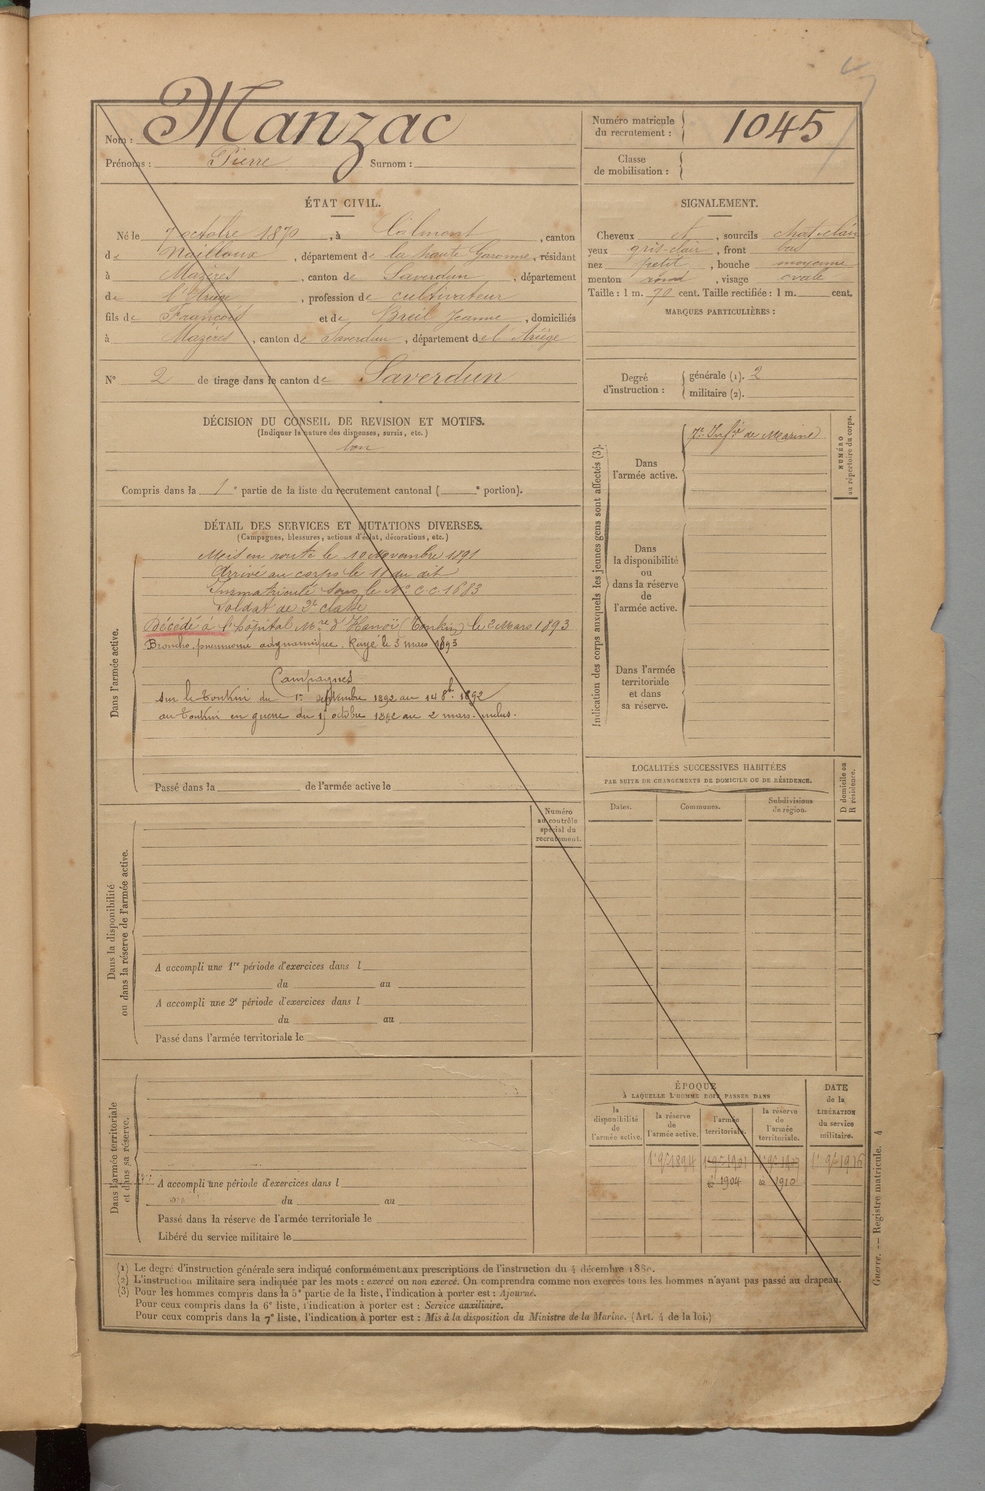 Nom : Manzac
Prénoms : Pierre Surnom :
Numéro matricule du recrutement : 1045
Classe de mobilisation :
ÉTAT CIVIL.
Né le 7 octobre 1870, à Calmont, canton
de Nailloux, département de la haute Garonne, résidant
à Mazères, canton de Saverdun, département
de l'Ariège, profession de cultivateur
fils de François et de Breil Jeanne, domiciliés
à Mazères, canton de Saverdun, département de l'Ariège
N° 2 de tirage dans le canton de Saverdun
SIGNALEMENT.
Cheveux , sourcils chat-clair
yeux gris-clair, front bas
nez petit, bouche moyenne
menton rond, visage ovale
Taille : 1 m. 70 cent. Taille rectifiée : 1 m. cent.
MARQUES PARTICULIÈRES :
Degré d'instruction : générale (1). 2
militaire (2).
DÉCISION DU CONSEIL DE REVISION ET MOTIFS.
(Indiquer la nature des dispenses, sursis, etc.)
bon
Compris dans la 1e partie de la liste du recrutement cantonal ( e portion).
DÉTAIL DES SERVICES ET MUTATIONS DIVERSES.
(Campagnes, blessures, actions d'éclat, décorations, etc.)
Dans l'armée active.
Mis en route le 10 Novembre 1891
Arrivé au corps le 11 du dit
Immatriculé sous le N° 1883
Soldat de 2e classe
Décédé à l'hôpital Mre d'Hanoï (Tonkin) le 2 Mars 1893
Broncho-pneumonie adynamique. Rayé le 3 mars 1893
Campagnes
sur le Tonkin du 1er septembre 1892 au 14 8bre 1892
au Tonkin en guerre du octobre 1892 au 2 mars inclus.
Passé dans la de l'armée active le
Indication des corps auxquels les jeunes gens sont affectés (3).
Dans l'armée active.
7e Infie de Marine
Dans la disponibilité ou dans la réserve de l'armée active.
Dans l'armée territoriale et dans sa réserve.
NUMÉRO au répertoire du corps.
LOCALITÉS SUCCESSIVES HABITÉES
PAR SUITE DE CHANGEMENTS DE DOMICILE OU DE RÉSIDENCE.
Dates. Communes. Subdivisions de région. D domicile ou R résidence.
Dans la disponibilité ou dans la réserve de l'armée active.
Numéro au contrôle spécial du recrutement.
A accompli une 1re période d'exercices dans l
du au
A accompli une 2e période d'exercices dans l
du au
Passé dans l'armée territoriale le
Dans l'armée territoriale et dans sa réserve.
A accompli une période d'exercices dans l
du au
Passé dans la réserve de l'armée territoriale le
Libéré du service militaire le
ÉPOQUE
À LAQUELLE L'HOMME DOIT PASSER DANS
la disponibilité de l'armée active. la réserve de l'armée active. l'armée territoriale. la réserve de l'armée territoriale.
DATE de la LIBÉRATION du service militaire.
1904 1910
(1) Le degré d'instruction générale sera indiqué conformément aux prescriptions de l'instruction du 4 décembre 1889.
(2) L'instruction militaire sera indiquée par les mots : exercé ou non exercé. On comprendra comme non exercés tous les hommes n'ayant pas passé au drapeau.
(3) Pour les hommes compris dans la 5e partie de la liste, l'indication à porter est : Ajourné.
Pour ceux compris dans la 6e liste, l'indication à porter est : Service auxiliaire.
Pour ceux compris dans la 7e liste, l'indication à porter est : Mis à la disposition du Ministre de la Marine. (Art. 4 de la loi.)
Guerre. — Registre matricule. 4